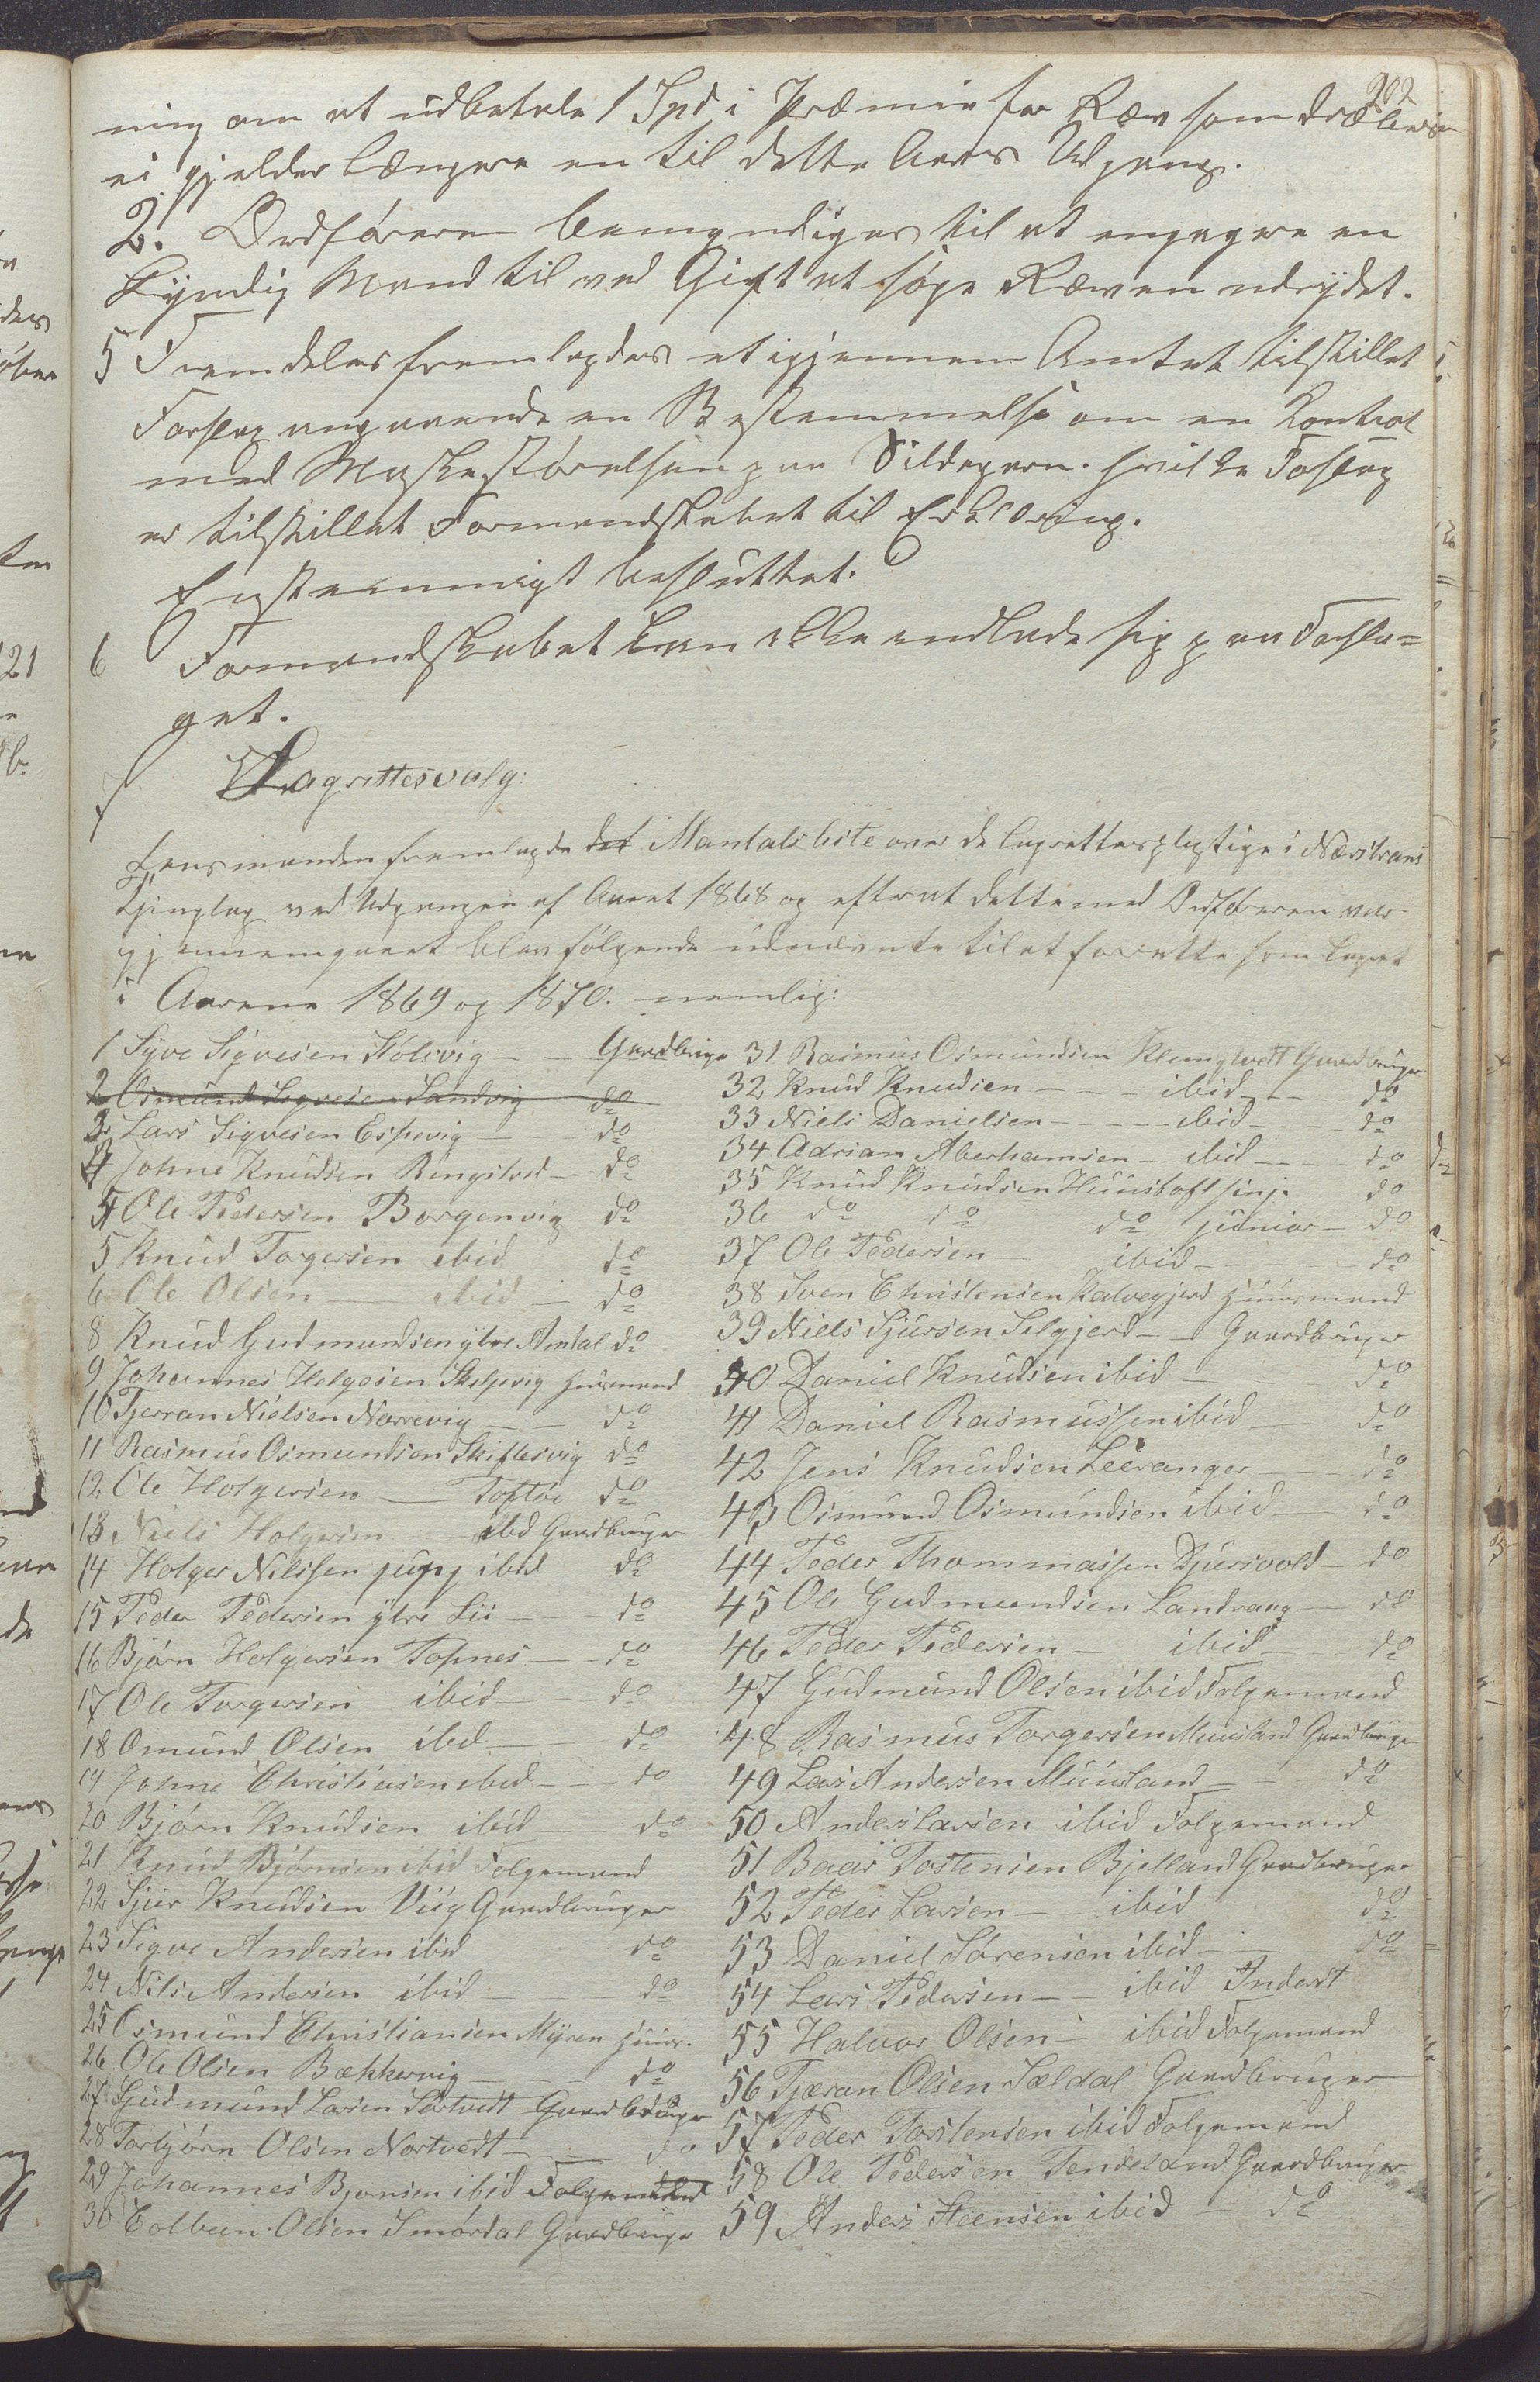 202
ning om at udbetale 1 Spd i Præmie for Ræv som dræbes
ei gjelder længere en til dette Aars Udgang.
2. Ordføreren bemyndiges til at engagere en
kyndig Mand til ved Gift at søge Ræven udrydet.
5 Fremdeles fremlagdes et igjennem Amtet tilstillet
Forslag angaaende en Bestemmelse om en Kontrol
med Maskestørelsen paa Sildegarn. hvilke Foslag
er tilstillet Formandskabet til Erklæring.
Enstemmigt besluttet.
6 Formandskabet kan ikke indlade sig paa Forsla=
get.
7 Lagrettesvalg:
Lensmanden fremlagde det Mantalsliste over de lagrettespligtige i Nærstrans
Thinglag ved Udgangen af Aaret 1868 og efterat dette med Ordføreren var
gjennemgaaet blev følgende udnævnte til at forrette som Lagret
i Aarene 1869 og 1870. nemlig:
1 Syve Sigvesen Hólsvig - - Gaardbruger
2 Osmund Sigvesen Sandvig do
3 Lars Sigvesen Espevig - do
4 Johne Knudsen Ringstved - do
5 Ole Pedersen Borgenvig do
5 Knud Torgersen ibid do
6 Ole Olsen - ibid - do
8 Knud Gudmundsen ytre Amdal do
9 Johannes Helgesen Skeljevig Huusmand
10 Tjerran Nielsen Narrevig - do
11 Rasmus Osmundsen Skiftesvig do
12 Ole Holgersen - Toftøe do
13 Niels Holgersen ibid Gaardbruger
14 Holger Nilssen jung j ibid do
15 Peder Pedersen ytre Lii - do
16 Bjørn Holgersen Topnes - do
17 Ole Torgersen ibid - do
18 Omund Olsen ibid - do
19 Johne Christiansen ibid - do
20 Bjørn Knudsen ibid - do
21 Knud Bjørnsen ibid Folgemand
22 Sjur Knudsen Viig Gaardbruger
23 Sigve Andersen ibid do
24 Nils Andersen ibid - do
25 Osmund Christiansen Myren Huus.
26 Ole Olsen Bækkervig - do
27 Gudmund Larsen Sørtvedt Gaardbruger
28 Torbjørn Olsen Nortvedt - do
29 Johannes Bjonsen ibid Folgemand
30 Colbeen Olsen Smørdal Gaardbruger
31 Rasmus Osmundsen Klungtvedt Gaardbruger
32 Knud Knudsen - ibid - do
33 Niels Danielsen - - ibid - do
34 Adrian Aberhamsen - ibid - do
35 Knud Knudsen Huustoft sinj. do
36 do do do junior - do
37 Ole Pedersen - ibid - do
38 Sven Christensen Kalvegjerd Huusmand
39 Niels Sjursen Selgjerd - - Gaardbruger
40 Daniel Knudsen ibid - do
41 Daniel Rasmussen ibid - do
42 Jens Knudsen Leeranger - do
43 Osmund Osmundsen ibid - do
44 Peder Thommassen Djursvold - do
45 Ole Gudmundsen Landvaag - do
46 Peder Pedersen - ibid - do
47 Gudmund Olsen ibid Folgemand
48 Rasmus Torgersen Muusland Gaardbruger
49 Lars Andersen Muusland - do
50 Anders Larsen ibid Folgemand
51 Baar Tostensen Bjelland Gaardbruger
52 Peder Larsen - ibid do
53 Daniel Sørensen ibid - do
54 Lars Pedersen - - ibid Inderst
55 Halvor Olsen - ibid Folgemand
56 Tjæran Olsen Sældal Gaardbruger
57 Peder Torstensen ibid Folgemand
58 Ole Pedersen Tendeland Gaardbruger
59 Anders Steensen ibid - do